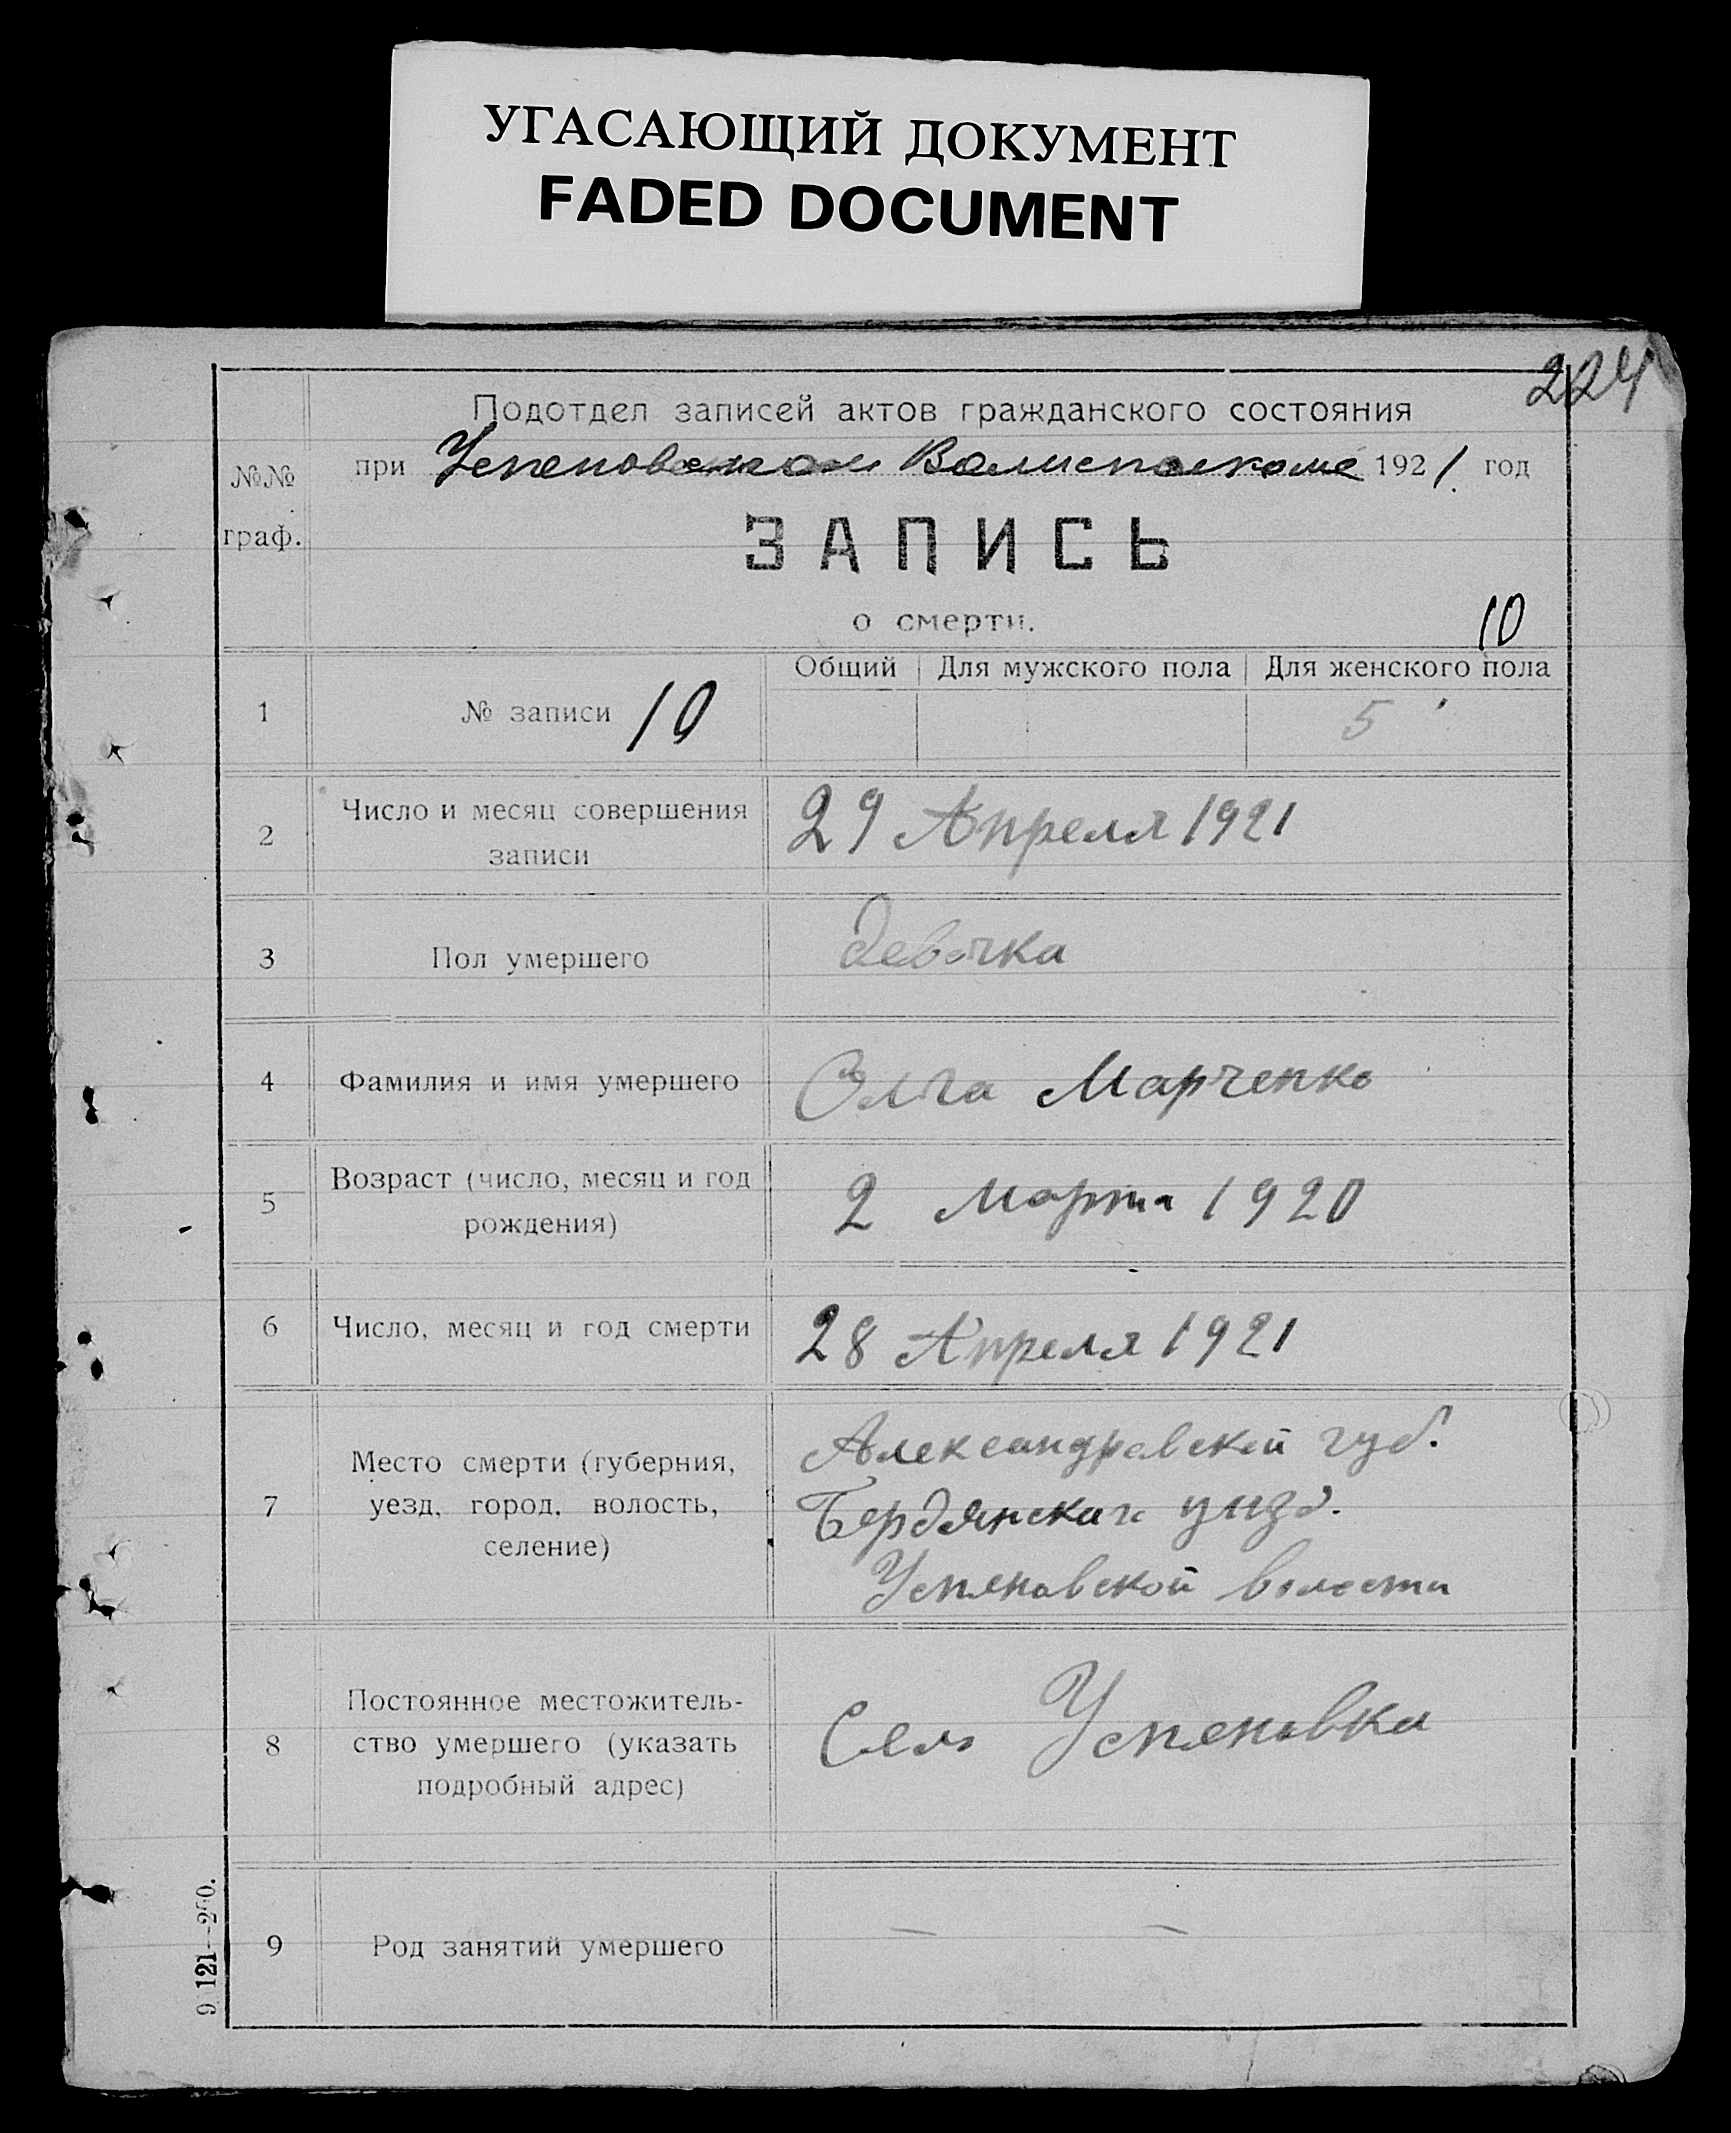 УГАСАЮЩИЙ ДОКУМЕНТ
FADED DOCUMENT
224
Подотдел записей актов гражданского состояния
№№ граф.
при Успеновском Волисполкоме 1921. год
ЗАПИСЬ
о смерти.
10
1 № записи 10
Общий Для мужского пола Для женского пола
5
2 Число и месяц совершения
записи
29 Апреля 1921
3 Пол умершего
девочка
4 Фамилия и имя умершего
Олга Марченко
5 Возраст (число, месяц и год
рождения)
2 марта 1920
6 Число, месяц и год смерти
28 Апреля 1921
7 Место смерти (губерния,
уезд, город, волость,
селение)
Александровской губ.
Бердянскаго уизд.
Успеновской волости
8 Постоянное местожитель-
ство умершего (указать
подробный адрес)
Село Успеновка
9 Род занятий умершего
— —